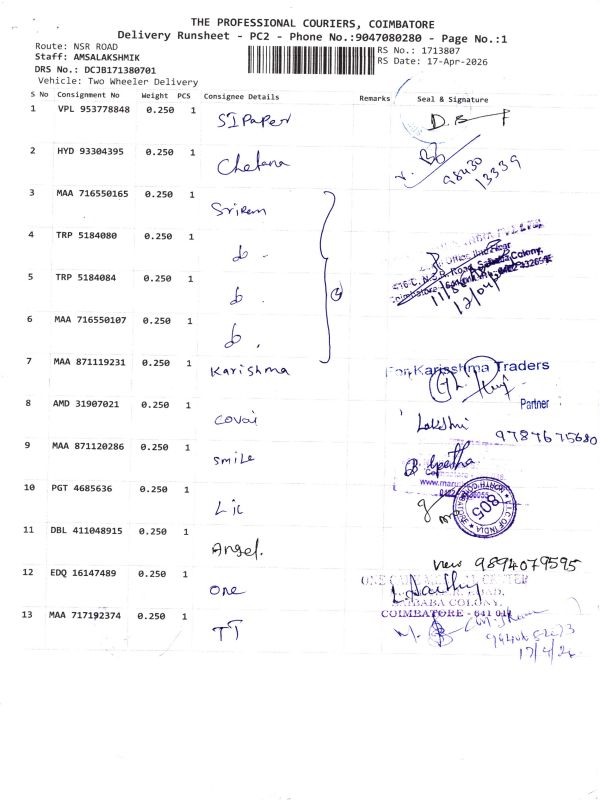 THE PROFESSIONAL COURIERS, COIMBATORE
Delivery Runsheet - PC2 - Phone No.:9047080280 - Page No.:1
Route: NSR ROAD
RS No.: 1713807
Staff: AMSALAKSHMIK
RS Date: 17-Apr-2026
DRS No.: DCJB171380701
Vehicle: Two Wheeler Delivery
S No Consignment No Weight PCS Consignee Details Remarks Seal & Signature
1 VPL 953778848 0.250 1 SIPaper
2 HYD 93304395 0.250 1 Chetana 98430 13339
3 MAA 716550165 0.250 1 Sriram
4 TRP 5184080 0.250 1
5 TRP 5184084 0.250 1
6 MAA 716550107 0.250 1
7 MAA 871119231 0.250 1 Karishma
For Karisshma Traders
Partner
8 AMD 31907021 0.250 1 Covai Lakshmi 9787675680
9 MAA 871120286 0.250 1 Smile
10 PGT 4685636 0.250 1 Lic
805
L.I.C OF INDIA
11 DBL 411048915 0.250 1 Angel. 9894079595
12 EDQ 16147489 0.250 1 One
COIMBATORE - 641 011
13 MAA 717192374 0.250 1 TT
17/4/26